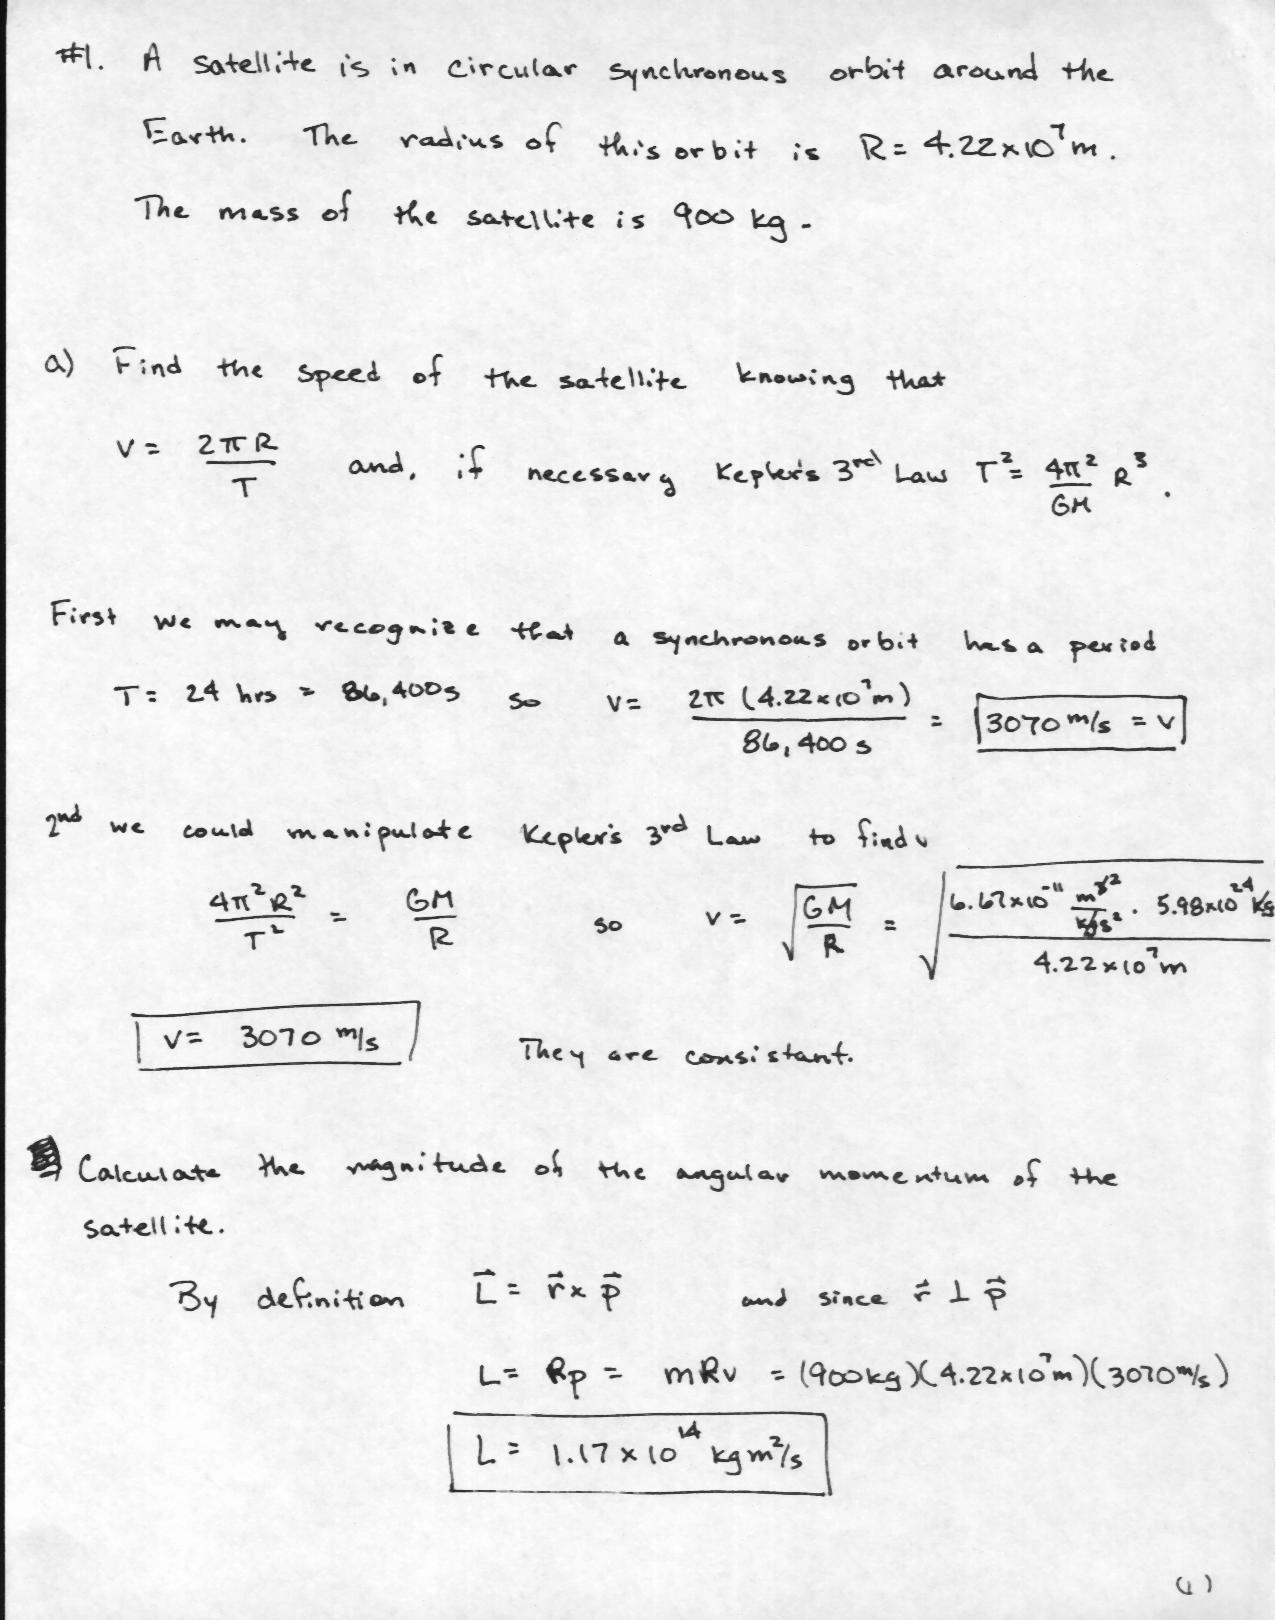 #1. A satellite is in circular synchronous orbit around the
Earth. The radius of this orbit is R = 4.22×10⁷ m.
The mass of the satellite is 900 kg.
a) Find the speed of the satellite knowing that
v = 2πR/T and, if necessary Kepler's 3rd Law T² = 4π²/GM R³.
First we may recognize that a synchronous orbit has a period
T = 24 hrs = 86,400s so v = 2π (4.22×10⁷m) / 86,400 s = 3070 m/s = v
2nd we could manipulate Kepler's 3rd Law to find v
4π²R²/T² = GM/R so v = √(GM/R) = √(6.67×10⁻¹¹ m³²/kg s² · 5.98×10²⁴ kg / 4.22×10⁷ m)
v = 3070 m/s They are consistant.
Calculate the magnitude of the angular momentum of the
satellite.
By definition L⃗ = r⃗ × p⃗ and since r⃗ ⊥ p⃗
L = Rp = mRv = (900kg)(4.22×10⁷m)(3070 m/s)
L = 1.17 × 10¹⁴ kg m²/s
(1)